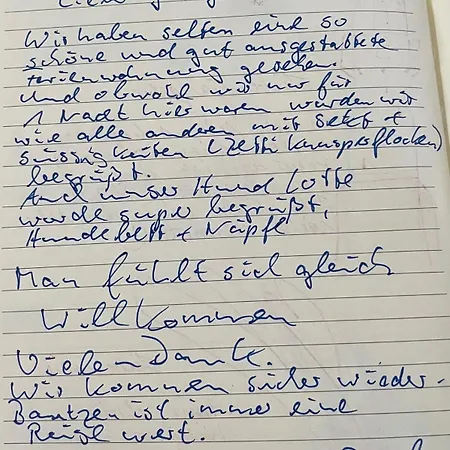 Wir haben selten eine so
schöne und gut ausgestattete
Ferienwohnung gesehen.
Und obwohl wir nur für
1 Nacht hier waren wurden wir
wie alle anderen mit Sekt +
Süssigkeiten (Zetti Knusperflocken)
begrüßt.
Auch unser Hund Lotte
wurde super begrüßt,
Hundebett + Näpfe
Man fühlt sich gleich
Willkommen
Vielen Dank.
Wir kommen sicher wieder.
Bautzen ist immer eine
Reise wert.